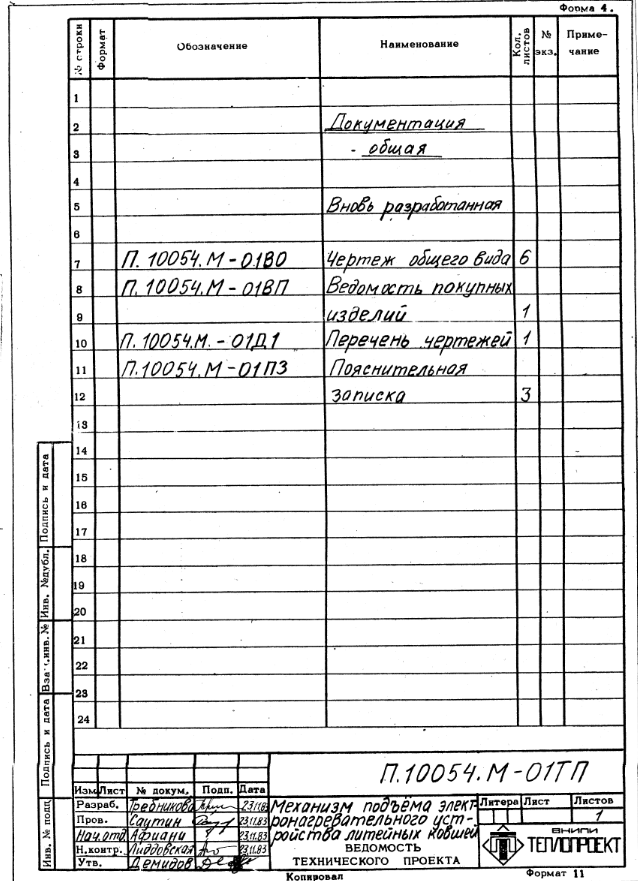 Форма 4.
№ строки Формат Обозначение Наименование Кол. листов № экз. Приме-
чание
1
2 Документация
3 - общая
4
5 Вновь разработанная
6
7 П. 10054. М - 01ВО Чертеж общего вида 6
8 П. 10054. М - 01ВП Ведомость покупных
9 изделий 1
10 П. 10054. М. - 01Д.1 Перечень чертежей 1
11 П. 10054. М - 01ПЗ Пояснительная
12 записка 3
13
14
15
16
17
18
19
20
21
22
23
24
Подпись и дата
Инв. №дубл.
Взам.инв. №
Подпись и дата
Инв. № подл
П.10054. М - 01ТП
Изм Лист № докум. Подп. Дата
Разраб. 23.11.83 Механизм подъёма элект- Литера Лист Листов
Пров. Саутин 23.11.83 ронагревательного уст- 1
Нач.отд. Афиани 23.11.83 ройства литейных ковшей
Н.контр. Лиддовская 23.11.83 ВЕДОМОСТЬ ВНИПИ
Утв. Демидов ТЕХНИЧЕСКОГО ПРОЕКТА ТЕПЛОПРОЕКТ
Копировал Формат 11